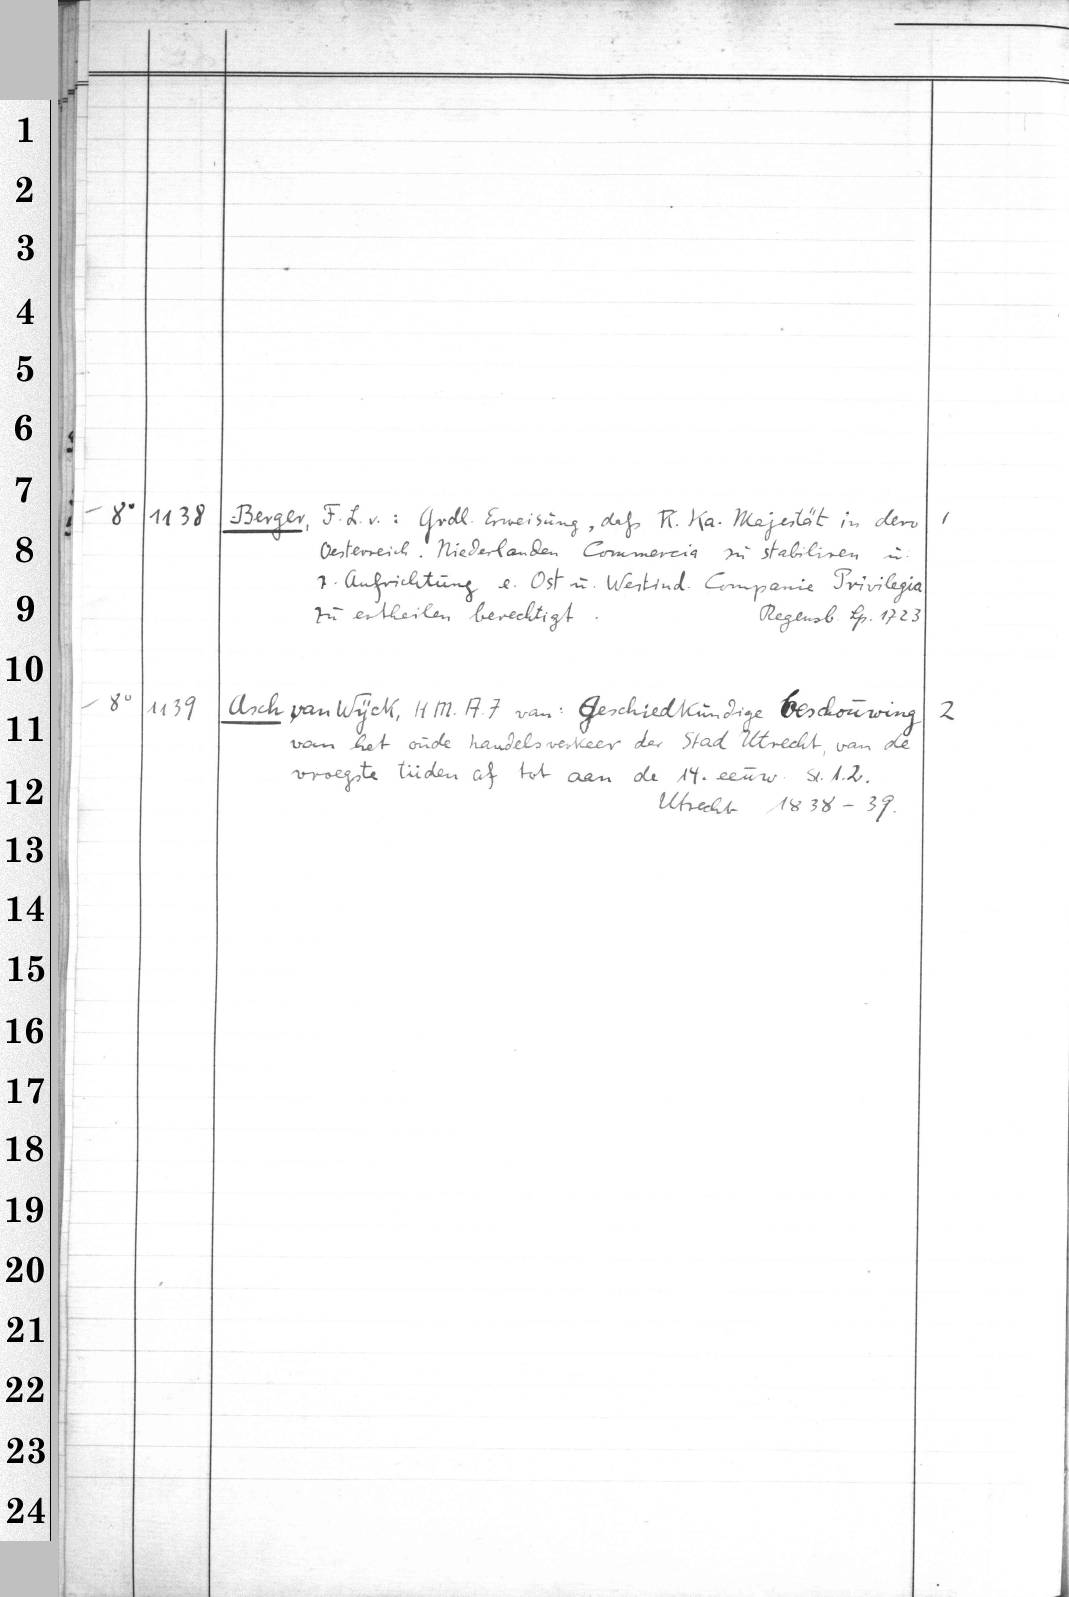 1
2
3
4
5
6
7
— 8° 1138 Berger, F. L. v.: Grdl. Erweisung, daß R. Ka. Majestät in dero 1
8
Oesterreich. Niederlanden Commercia zu stabiliren u.
z. Aufrichtung e. Ost u. Westind. Companie Privilegia
9
zu ertheilen berechtigt. Regensb. Lp. 1723
10
— 8° 1139 Asch van Wijck, H M. A. J van: Geschiedkundige beschouwing 2
11
van het oude handelsverkeer der Stad Utrecht, van de
vroegste tijden af tot aan de 14. eeuw. St. 1.2.
12
Utrecht 1838 – 39.
13
14
15
16
17
18
19
20
21
22
23
24